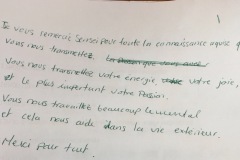 1
Je vous remercie sensei pour toute la connaissance aquise q
Vous nous transmettez, la passion que vous avez
Vous nous transmettez votre énergie, votre joie,
et le plus important votre Passion.
Vous nous travaillez beaucoup le mental
et cela nous aide dans la vie extérieur.
Merci pour tout.